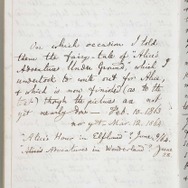 On which occasion I told
them the fairy-tale of "Alice's
Adventures Under Ground," which I
undertook to write out for Alice,
& which is now finished (as to the
text) though the pictures are not
yet nearly done — Feb. 10. 1863
nor yet — Mar. 12. 1864
"Alice's Hour in Elfland"? June
"Alice's Adventures in Wonderland"? June